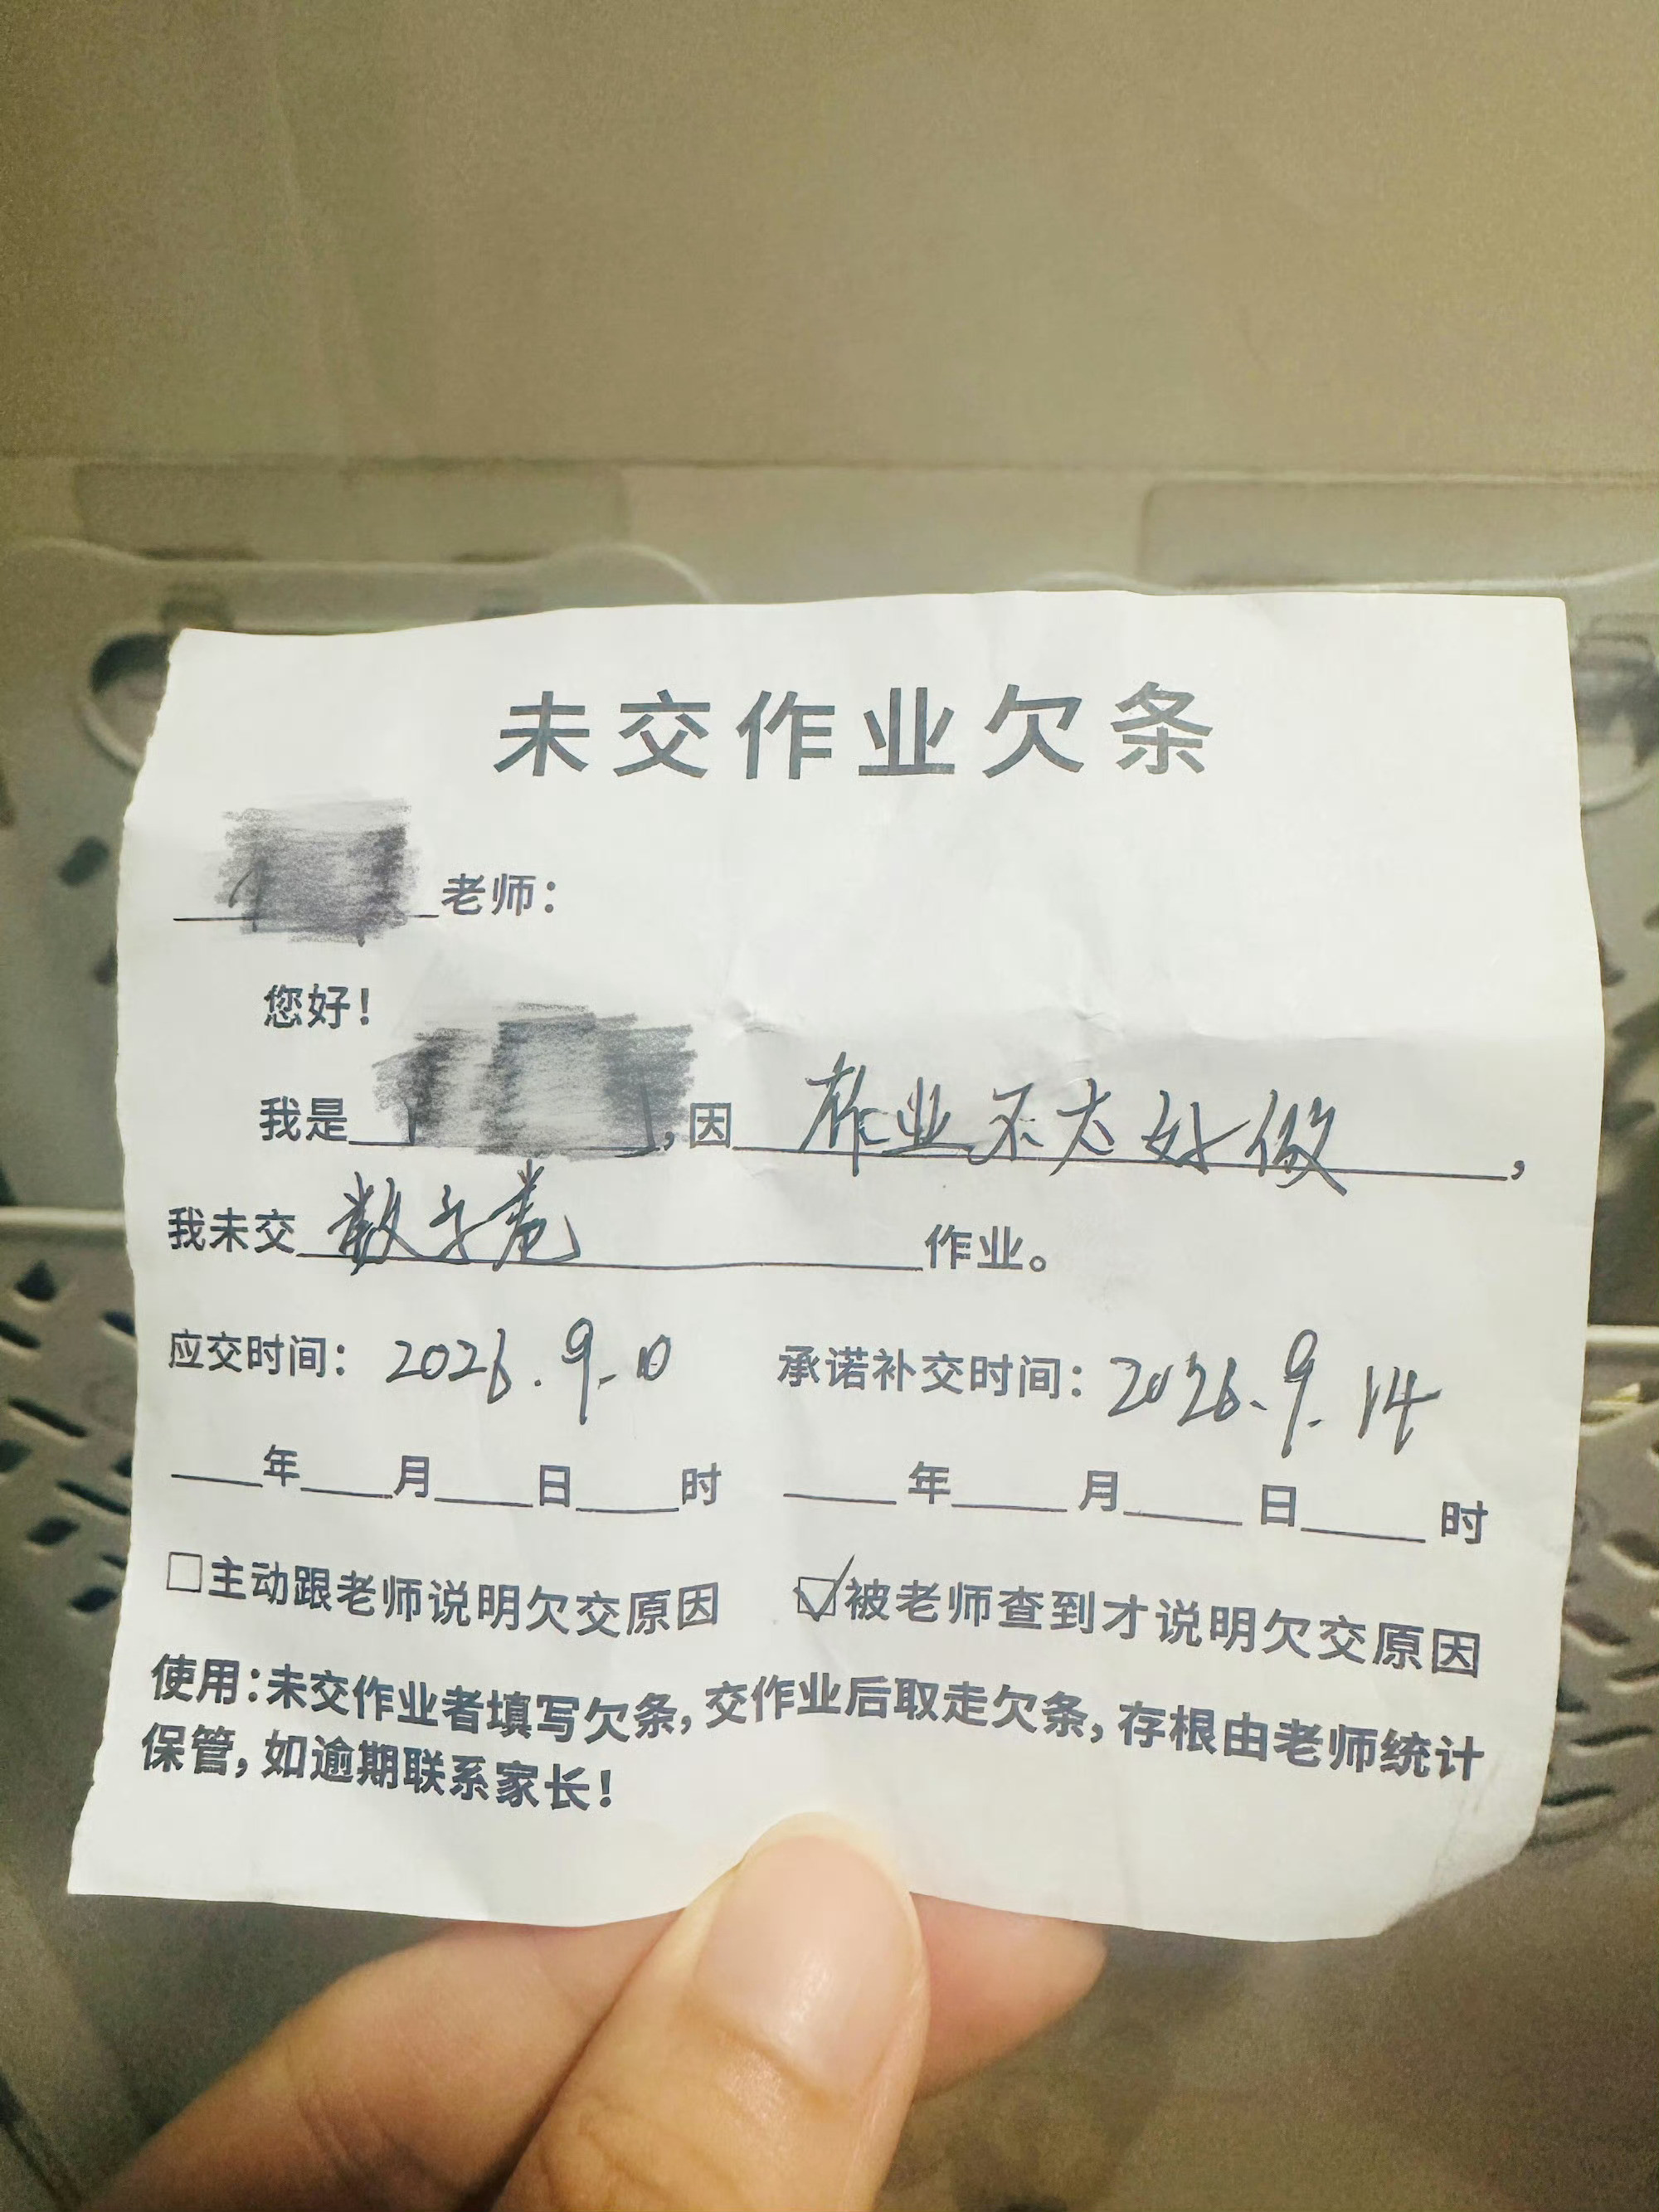 未交作业欠条
老师：
您好！
我是，因作业不太好做，
我未交数学卷作业。
应交时间：2026.9.10 承诺补交时间：2026.9.14
年 月 日 时 年 月 日 时
□主动跟老师说明欠交原因 ☑被老师查到才说明欠交原因
使用：未交作业者填写欠条，交作业后取走欠条，存根由老师统计
保管，如逾期联系家长！